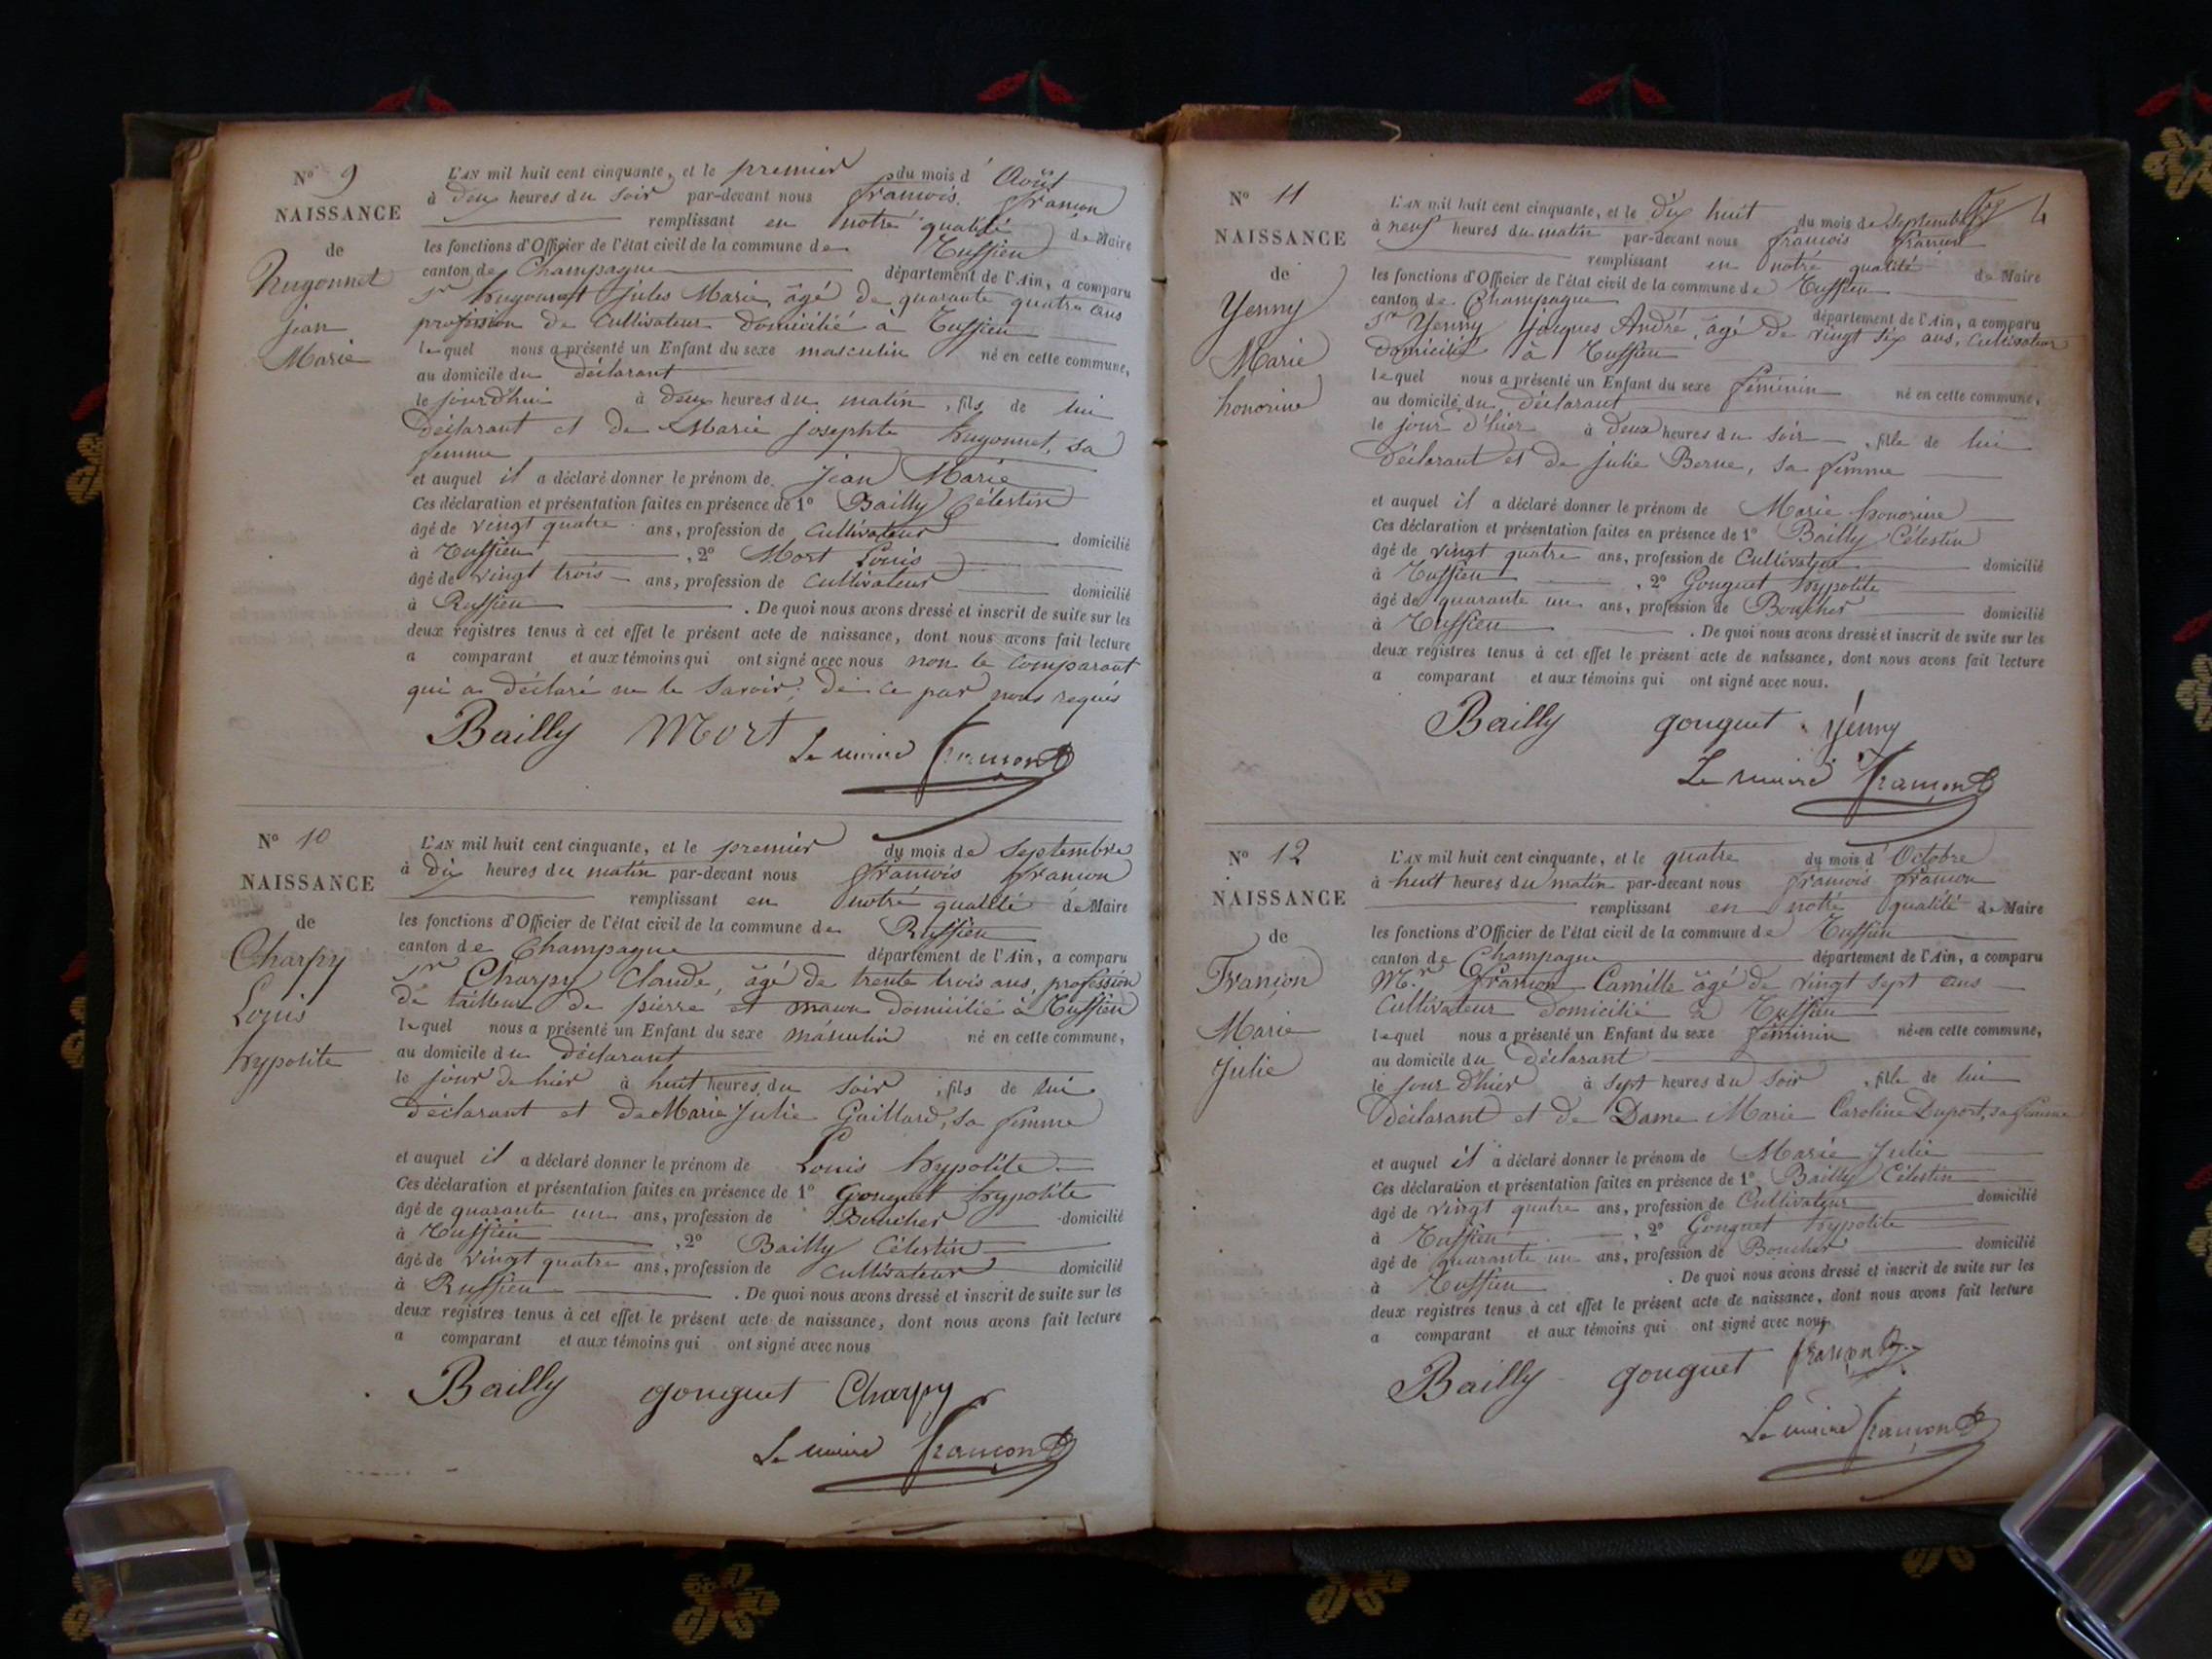 Nº 9
NAISSANCE
de
Hugonnet
jean
Marie
L'AN mil huit cent cinquante, et le premier du mois d'Août
à deux heures du soir par-devant nous françois françon
remplissant en notre qualité de Maire
les fonctions d'Officier de l'état civil de la commune de Ruffieu
canton de Champagne département de l'Ain, a comparu
Sr hugonnet jules Marie, âgé de quarante quatre ans
profession de Cultivateur domicilié à Ruffieu
lequel nous a présenté un Enfant du sexe masculin né en cette commune,
au domicile du déclarant
le jourd'hui à deux heures du matin, fils de lui
déclarant et de Marie josephte hugonnet, sa
femme
et auquel il a déclaré donner le prénom de jean Marie
Ces déclaration et présentation faites en présence de 1º Bailly Célestin
âgé de vingt quatre ans, profession de Cultivateur domicilié
à Ruffieu, 2º Mort Louis
âgé de vingt trois ans, profession de Cultivateur domicilié
à Ruffieu. De quoi nous avons dressé et inscrit de suite sur les
deux registres tenus à cet effet le présent acte de naissance, dont nous avons fait lecture
a comparant et aux témoins qui ont signé avec nous non le comparant
qui a déclaré ne le savoir, de ce par nous requis
Bailly Mort
Le maire françon
Nº 10
NAISSANCE
de
Charpy
Louis
hypolite
L'AN mil huit cent cinquante, et le premier du mois de Septembre
à dix heures du matin par-devant nous françois françon
remplissant en notre qualité de Maire
les fonctions d'Officier de l'état civil de la commune de Ruffieu
canton de Champagne département de l'Ain, a comparu
Sr Charpy Claude, âgé de trente trois ans, profession
de tailleur de pierre et maçon domicilié à Ruffieu
lequel nous a présenté un Enfant du sexe masculin né en cette commune,
au domicile du déclarant
le jour de hier à huit heures du soir, fils de lui
déclarant et de Marie Julie Gaillard, sa femme
et auquel il a déclaré donner le prénom de Louis hypolite
Ces déclaration et présentation faites en présence de 1º Gouguet hypolite
âgé de quarante un ans, profession de Boucher domicilié
à Ruffieu, 2º Bailly Célestin
âgé de vingt quatre ans, profession de Cultivateur domicilié
à Ruffieu. De quoi nous avons dressé et inscrit de suite sur les
deux registres tenus à cet effet le présent acte de naissance, dont nous avons fait lecture
a comparant et aux témoins qui ont signé avec nous
Bailly gouguet Charpy
Le maire françon
4
Nº 11
NAISSANCE
de
Yenny
Marie
honorine
L'AN mil huit cent cinquante, et le dix huit du mois de Septembre
à neuf heures du matin par-devant nous françois françon
remplissant en notre qualité de Maire
les fonctions d'Officier de l'état civil de la commune de Ruffieu
canton de Champagne département de l'Ain, a comparu
Sr Yenny jacques André, âgé de vingt six ans, Cultivateur
domicilié à Ruffieu
lequel nous a présenté un Enfant du sexe féminin né en cette commune,
au domicile du déclarant
le jour d'hier à deux heures du soir, fille de lui
déclarant et de julie Berne, sa femme
et auquel il a déclaré donner le prénom de Marie honorine
Ces déclaration et présentation faites en présence de 1º Bailly Célestin
âgé de vingt quatre ans, profession de Cultivateur domicilié
à Ruffieu, 2º Gouguet hypolite
âgé de quarante un ans, profession de Boucher domicilié
à Ruffieu. De quoi nous avons dressé et inscrit de suite sur les
deux registres tenus à cet effet le présent acte de naissance, dont nous avons fait lecture
a comparant et aux témoins qui ont signé avec nous.
Bailly gouguet yenny
Le maire françon
Nº 12
NAISSANCE
de
Françon
Marie
Julie
L'AN mil huit cent cinquante, et le quatre du mois d'Octobre
à huit heures du matin par-devant nous françois françon
remplissant en notre qualité de Maire
les fonctions d'Officier de l'état civil de la commune de Ruffieu
canton de Champagne département de l'Ain, a comparu
Mr. françon Camille âgé de vingt sept ans
Cultivateur domicilié à Ruffieu
lequel nous a présenté un Enfant du sexe féminin né en cette commune,
au domicile du déclarant
le jour d'hier à sept heures du soir, fille de lui
déclarant et de Dame Marie Caroline Duport, sa femme
et auquel il a déclaré donner le prénom de Marie Julie
Ces déclaration et présentation faites en présence de 1º Bailly Célestin
âgé de vingt quatre ans, profession de Cultivateur domicilié
à Ruffieu, 2º Gouguet hypolite
âgé de quarante un ans, profession de Boucher domicilié
à Ruffieu. De quoi nous avons dressé et inscrit de suite sur les
deux registres tenus à cet effet le présent acte de naissance, dont nous avons fait lecture
a comparant et aux témoins qui ont signé avec nous
Bailly gouguet françon
Le maire françon